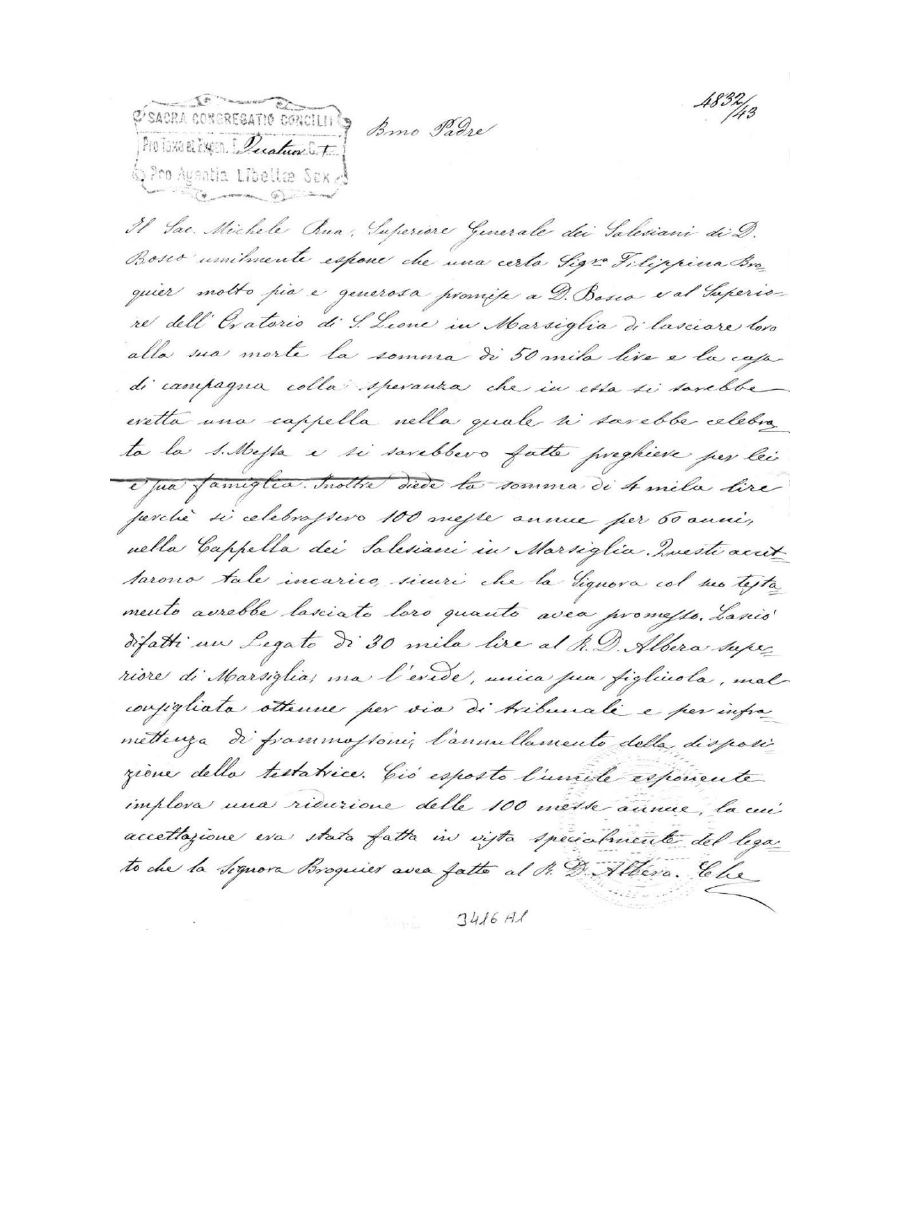 4832/43
SACRA CONGREGATIO CONCILII
Pro Taxa et Expen.
Pro Agentia Libellæ Sex
Bmo Padre
Il Sac. Michele Rua, Superiore Generale dei Salesiani di D.
Bosco umilmente espone che una certa Sigra Filippina Bro-
quier molto pia e generosa promise a D. Bosco e al Superio-
re dell'Oratorio di S. Leone in Marsiglia di lasciare loro
alla sua morte la somma di 50 mila lire e la casa
di campagna colla speranza che in essa si sarebbe
eretta una cappella nella quale si sarebbe celebra-
ta la S. Messa e si sarebbero fatte preghiere per lei
e sua famiglia. Inoltre diede la somma di 4 mila lire
perchè si celebrassero 100 messe annue per 60 anni,
nella Cappella dei Salesiani in Marsiglia. Questi accet-
tarono tale incarico, sicuri che la Signora col suo testa-
mento avrebbe lasciato loro quanto avea promesso. Lasciò
difatti un Legato di 30 mila lire al R. D. Albera supe-
riore di Marsiglia, ma l'erede, unica sua figliuola, mal
consigliata ottenne per via di tribunali e per infra-
mettenza di frammassoni, l'annullamento della disposi-
zione della testatrice. Ciò esposto l'umile esponente
implora una riduzione delle 100 messe annue, la cui
accettazione era stata fatta in vista specialmente del lega-
to che la Signora Broquier avea fatto al R. D. Albera. Che
3416 A1